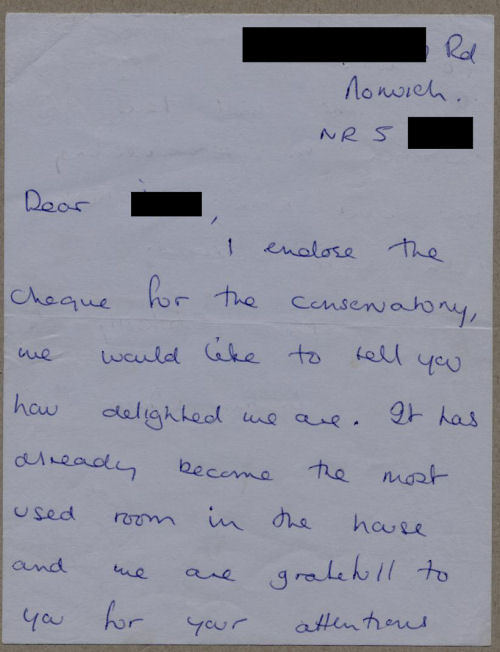 Rd
Norwich.
NR 5
Dear ,
I enclose the
cheque for the conservatory,
we would like to tell you
how delighted we are. It has
already become the most
used room in the house
and we are gratefull to
you for your attentions